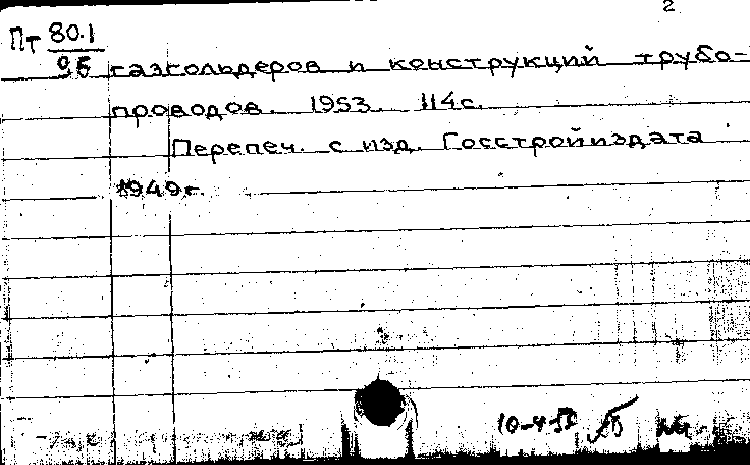 2
Пт 80.1
95 газгольдеров и конструкций трубо-
проводов. 1953. 114 с.
Перепеч. с изд. Госстройиздата
1949 г.